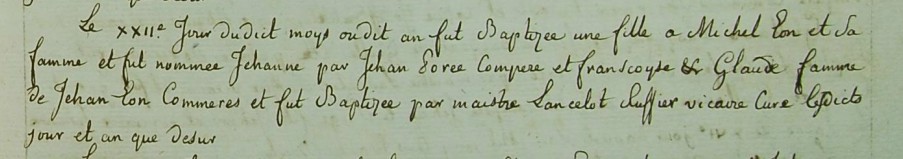 Le xxii.e Jour dudict moys oudit an fut Baptizee une fille a Michel Eon et sa
famme et fut nommee Jehanne par Jehan Boree Compere et franscoyse & Glaude famme
de Jehan Eon Commeres et fut Baptizee par maistre Lancelot vicaire Cure lesdicts
jour et an que desur